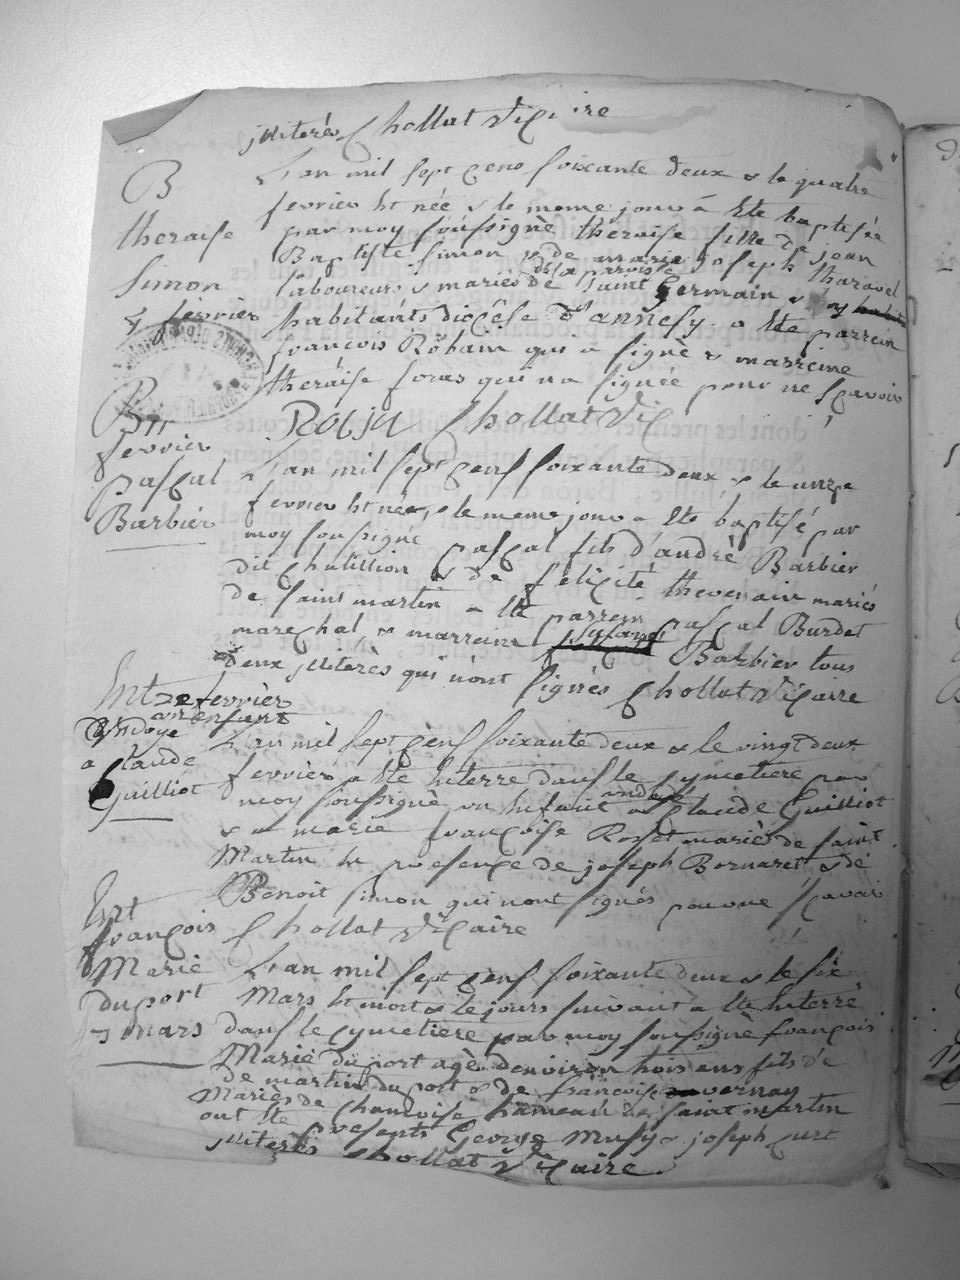 jlliterés Chollat Vicaire
B
theraise
Simon
4 fevrier
L'an mil sept cens soixante deux & le quatre
fevrier est née & le meme jour a êtte baptisée
par moy soussignè theraise fille de jean
Baptiste Simon & de marie joseph tharavel
laboureurs & mariés de Saint Germain &
de la paroisse
habitants diocése d'annesy a ête parrein
francois Robain qui a signè & marreine
theraise foras qui n'a signée pour ne sçavoir
Robin Chollat Vic
B 11
fevrier
pascal
Barbier
L'an mil sept cens soixante deux & le unze
fevrier est née, & le meme jour a êtte baptisé par
moy soussigné pascal fils d'andrè Barbier
dit chatillion & de felicité thevenain mariés
de saint martin a ete parrein pascal Burdet
marechal & marreine Barbier tous
deux jlliterès qui n'ont signés Chollat Vicaire
Ent 22 fevrier
un enfant
Ondoyé
a Claude
Guilliot
L'an mil sept cens soixante deux & le vingt deux
fevrier a ête enterré dans le cymetiere par
moy soussignè un enfant ondoyé a Claude Guilliot
& a marie françoise Rosset mariès de saint
Martin en presence de joseph Bornaret & de
Benoit Simon qui n'ont signés pour ne sçavoir
Chollat Vicaire
Ent
françois
Marie
duport
7 mars
L'an mil sept cens soixante deux & le six
Mars est mort & le jours suivant a ête enterré
dans le cymetiere par moy soussignè françois
Marie duport agè denviron trois ans fils de
de martin duport & de françoise vernay
Mariés de chanoise hameau de saint martin
ont ete presents George Musy & joseph curt
jlliterès Chollat Vicaire